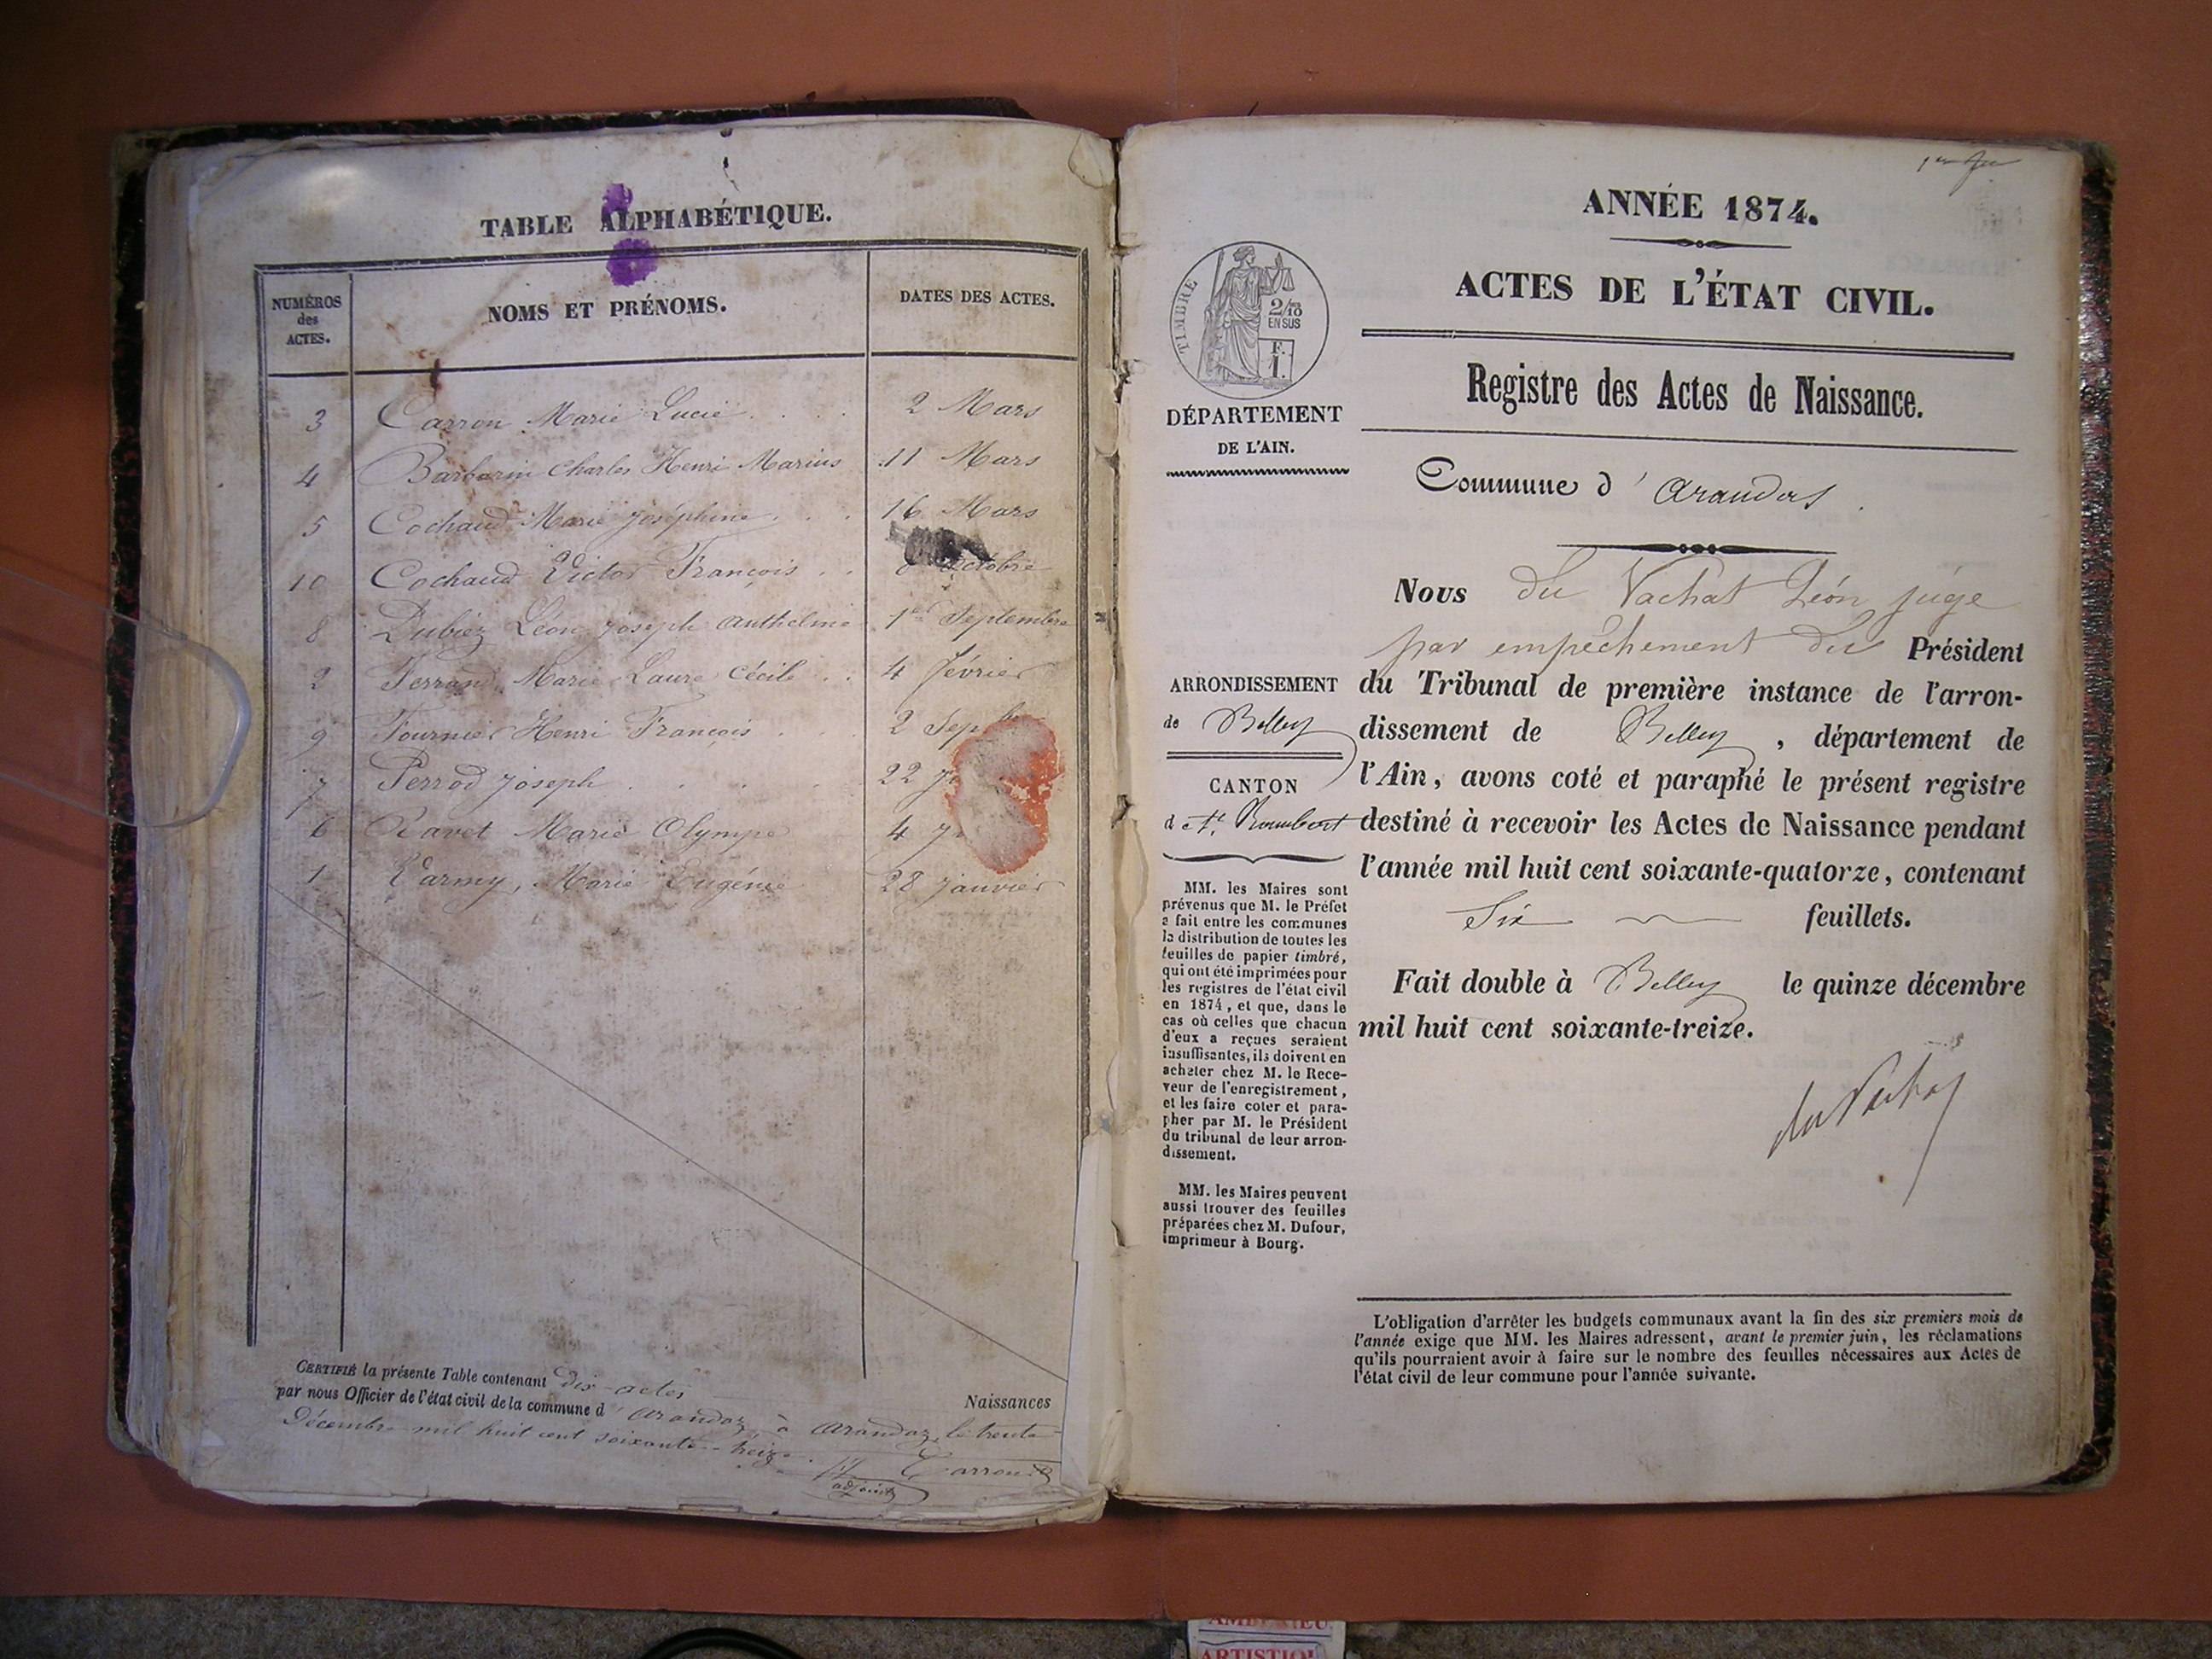 TABLE ALPHABÉTIQUE.
NUMÉROS
des
ACTES.
NOMS ET PRÉNOMS.
DATES DES ACTES.
3 Carron Marie Lucie 2 Mars
4 Barbarin Charles Henri Marius 11 Mars
5 Cochaud Marie Joséphine 16 Mars
10 Cochaud Victor François 8 Octobre
8 Dubiez Léon Joseph Anthelme 1er Septembre
2 Ferrand Marie Laure Cécile 4 Février
9 Fournier Henri François 2 Sep
7 Perrod Joseph 22
6 Ravet Marie Olympe 4
1 Varney, Marie Eugénie 28 Janvier
CERTIFIÉ la présente Table contenant dix actes
Naissances
par nous Officier de l'état civil de la commune d'Arandaz, à Arandaz, le trente
Décembre mil huit cent soixante-treize.
Carron
adjoint
ANNÉE 1874.
ACTES DE L'ÉTAT CIVIL.
Registre des Actes de Naissance.
Commune d'Arandas.
TIMBRE
2/10
EN SUS
F.
1.
DÉPARTEMENT
DE L'AIN.
ARRONDISSEMENT
de Belley
CANTON
d St. Rambert
MM. les Maires sont
prévenus que M. le Préfet
a fait entre les communes
la distribution de toutes les
feuilles de papier timbré,
qui ont été imprimées pour
les registres de l'état civil
en 1874, et que, dans le
cas où celles que chacun
d'eux a reçues seraient
insuffisantes, ils doivent en
acheter chez M. le Rece-
veur de l'enregistrement,
et les faire coter et para-
pher par M. le Président
du tribunal de leur arron-
dissement.
MM. les Maires peuvent
aussi trouver des feuilles
préparées chez M. Dufour,
imprimeur à Bourg.
Nous du Vachat Léon juge
par empêchement du Président
du Tribunal de première instance de l'arron-
dissement de Belley, département de
l'Ain, avons coté et paraphé le présent registre
destiné à recevoir les Actes de Naissance pendant
l'année mil huit cent soixante-quatorze, contenant
Six feuillets.
Fait double à Belley le quinze décembre
mil huit cent soixante-treize.
du Vachat
L'obligation d'arrêter les budgets communaux avant la fin des six premiers mois de
l'année exige que MM. les Maires adressent, avant le premier juin, les réclamations
qu'ils pourraient avoir à faire sur le nombre des feuilles nécessaires aux Actes de
l'état civil de leur commune pour l'année suivante.